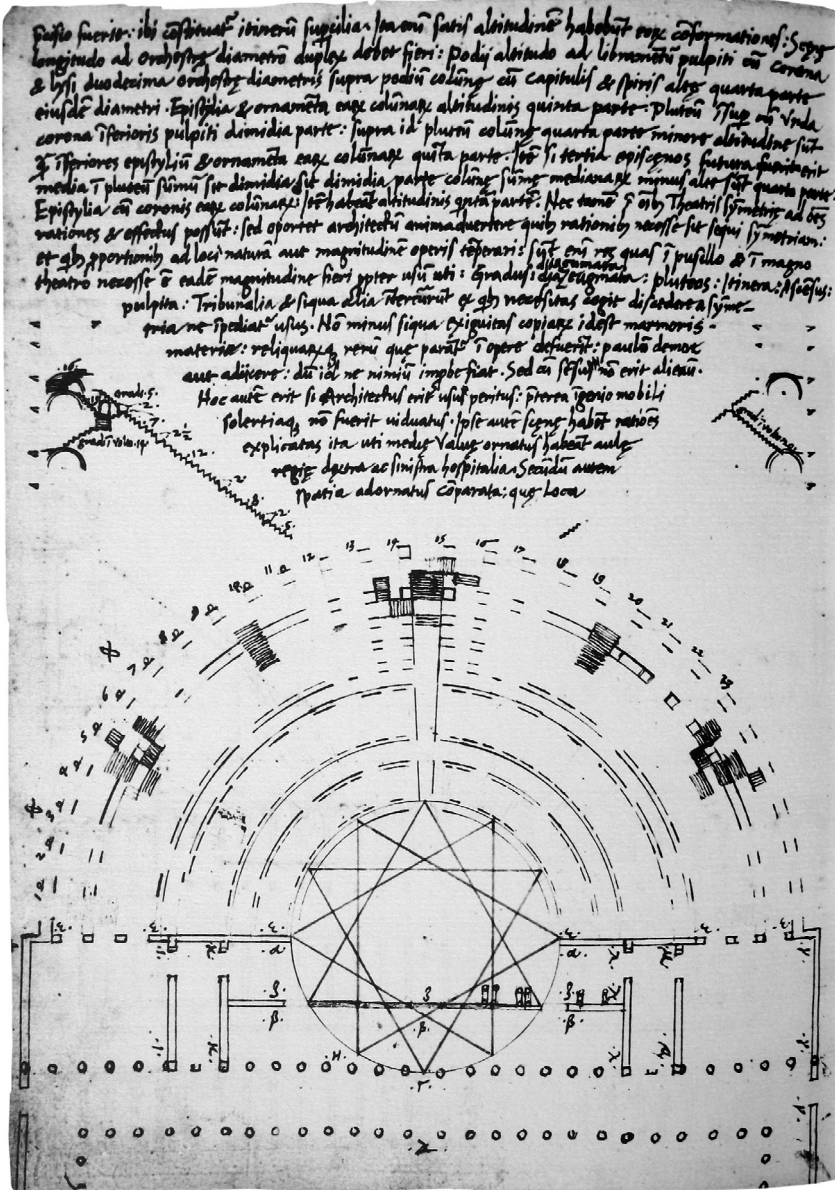 fuerit: ibi cōstituatʳ itinerū supcilia. Ita enī satis altitudinē habebūt eorꝝ cōformationes. Scęnę
longitudo ad orchestrę diametrō duplex debet fieri: Podij altitudo ad libramētū pulpiti cū corona
& lysi duodecima orchestrę diametris supra podiū colūnę cū capitulis & spiris altę quarta parte
eiusdē diametri. Epistylia & ornamēta earꝝ colūnarꝝ altitudinis quinta parte. Pluteū īsup cū vnda
corona īferioris pulpiti dimidia parte: supra id pluteū colūnę quarta parte minore altitudine sūt
ꝙ īferiores epistyliū & ornamēta earꝝ colūnarꝝ quīta parte: Itē si tertia episcęnos futura fuerit erit
media ī pluteū sūmū sit dimidia sit dimidia parte colūnę sūmę medianarꝝ minus altę sūt quarta parte:
Epistylia cū coronis earꝝ colūnarꝝ Itē habeāt altitudinis qntā partē. Nec tamē ī oībꝰ Theatris symetrię ad oēs
rationes & effectus possūt: sed oportet architectū animadvertere quibꝰ rationibꝰ necesse sit sequi symetriam:
et qbꝰ pportionibꝰ ad loci naturā aut magnitudinē operis tēperari: sūt enī res quas ī pusillo & ī magno
diazomata
theatro necesse ē eadē magnitudine fieri ppter usū uti: Gradus: diazeugmata: pluteos: Itinera: Ascēsus:
pulpita: Tribunalia & siqua alia ītercurrūt ex qbꝰ necessitas cogit discedere a syme-
tria ne īpediatʳ usus. Nō minus siqua exiguitas copiarꝝ idest marmoris
materię: reliquarꝝq rerū quę parātʳ ī opere defuerit: paulō demere
aut adijcere: dū id ne nimiū impbe fiat. Sed cū sēsu nō erit alienū.
Hoc autē erit si Architectus erit usus peritus: pterea īgenio mobili
solertiaq nō fuerit viduatus. Ipsę autē scęnę habēt ratiōes
explicatas ita uti medię Valuę ornatus habeāt aulę
regię dextra ac sinistra hospitalia. Secūdū autem
spatia adornatus cōparata: quę Loca
gradi.5.
12
8
11
12
13
14
15
16
17
18
19
20
21
22
23
10
9
8
7
6
5
4
3
2
1
ε ε ε ε
α α
β β β
λ
Γ